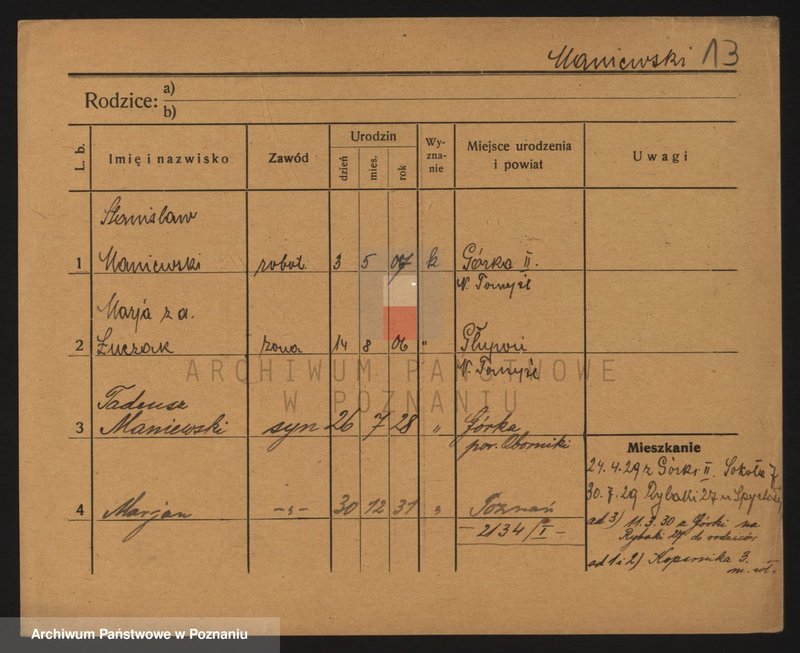 Maniewski 13
Rodzice: a)
b)
L. b.
Imię i nazwisko
Zawód
Urodzin
dzień
mies.
rok
Wy-
zna-
nie
Miejsce urodzenia
i powiat
Uwagi
Stanisław
1 Maniewski robot. 3 5 07 k Górka II.
N. Tomyśl
Marja z d.
2 Łuczak żona 14 8 06 "
N. Tomyśl
Tadeusz
3 Maniewski syn 26 7 28 " Górka
pow. Oborniki
4 Marjan -"- 30 12 31 " Poznań
- 2134/I -
Mieszkanie
24.4.29 z Górki II. Sokoła 7
30.7.29 Rybaki 27 u
ad 3) 11.3.30 z Górki na
Rybaki 27 do rodziców
ad 1 i 2) Kopernika 3.
ARCHIWUM PAŃSTWOWE
W POZNANIU
Archiwum Państwowe w Poznaniu